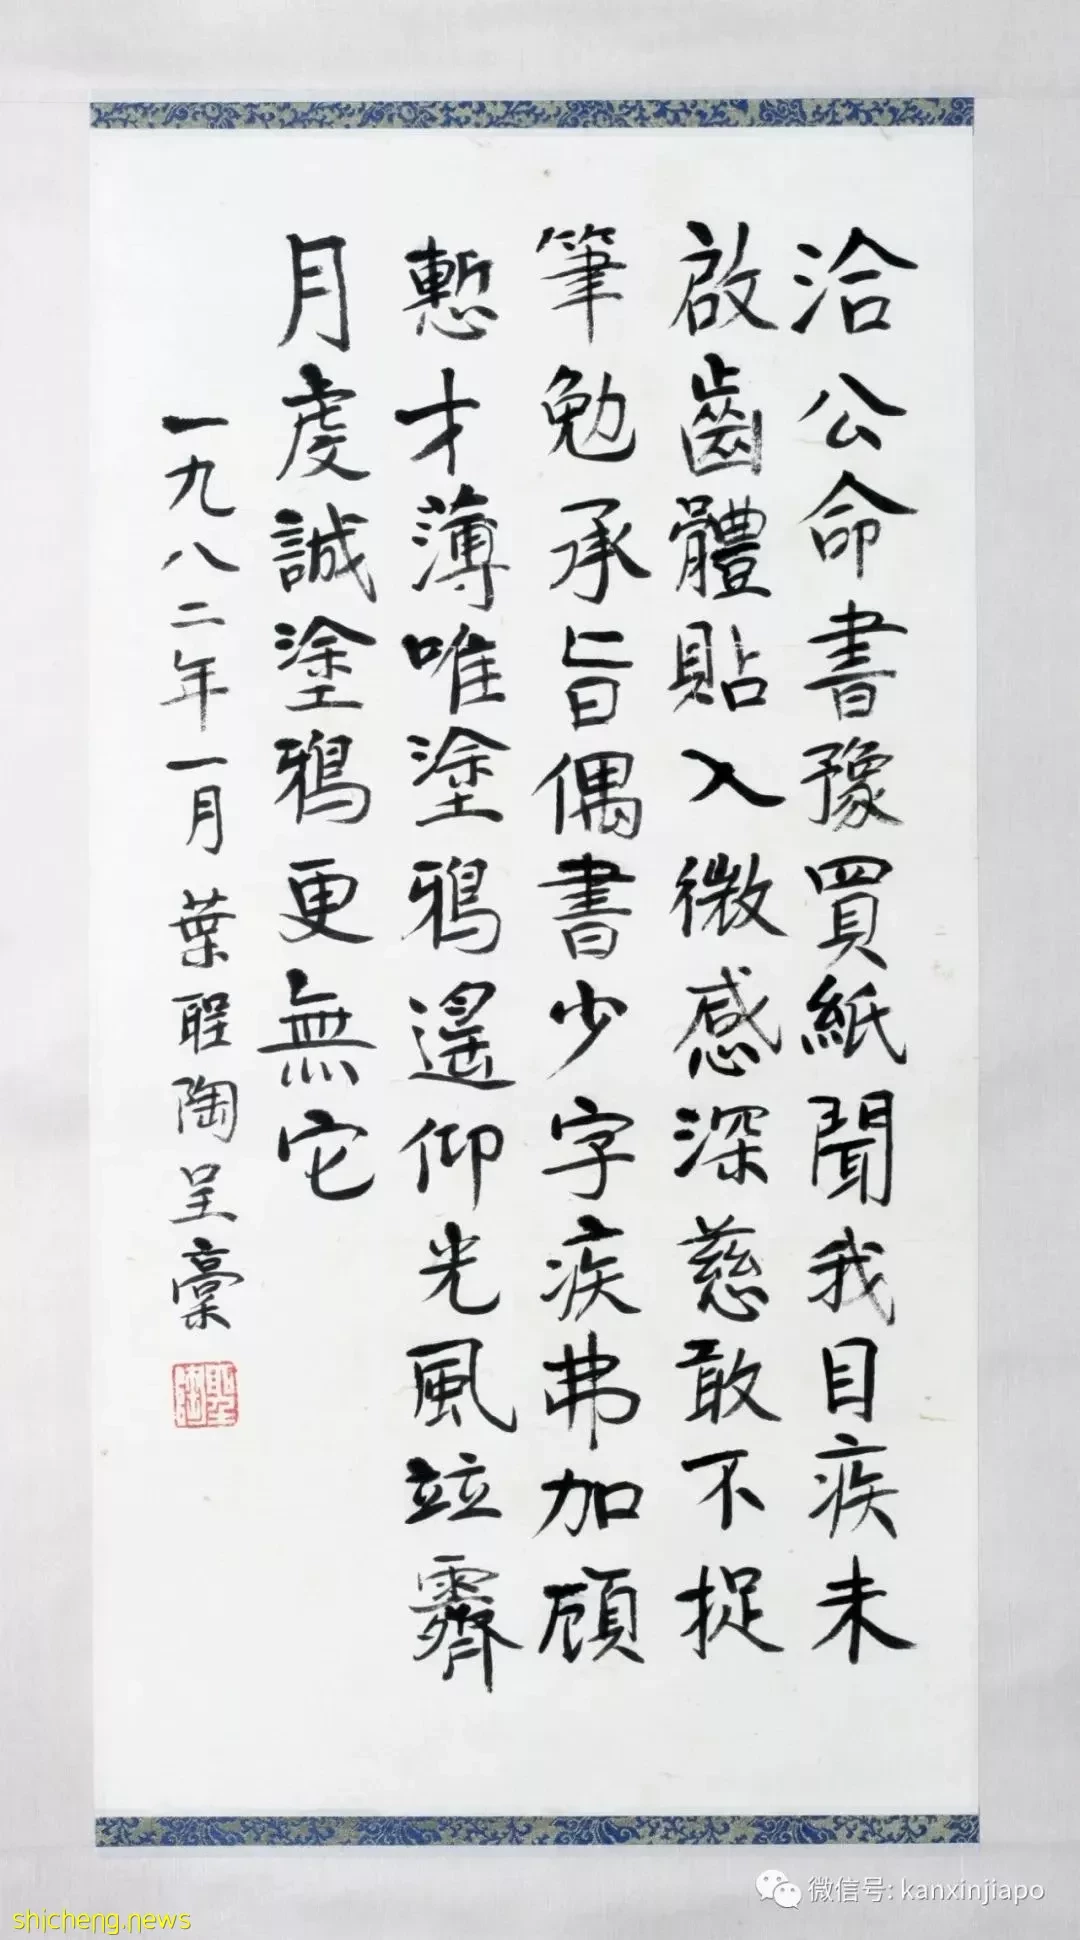 洽公命書豫買紙聞我目疾未
啟齒體貼入微感深慈敢不捉
筆勉承旨偶書少字疾弗加顧
慙才薄唯塗鴉遥仰光風竝霽
月虔誠塗鴉更無它
一九八二年一月葉聖陶呈稾
聖陶
微信号: kanxinjiapo
shicheng.news